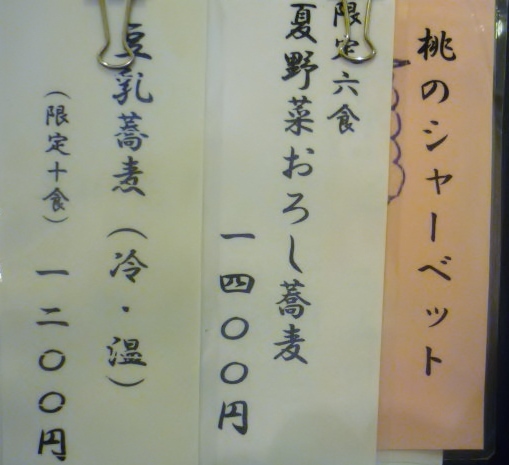 桃のシャーベット
限定六食
夏野菜おろし蕎麦
一四〇〇円
豆乳蕎麦（冷・温）
（限定十食）
一二〇〇円